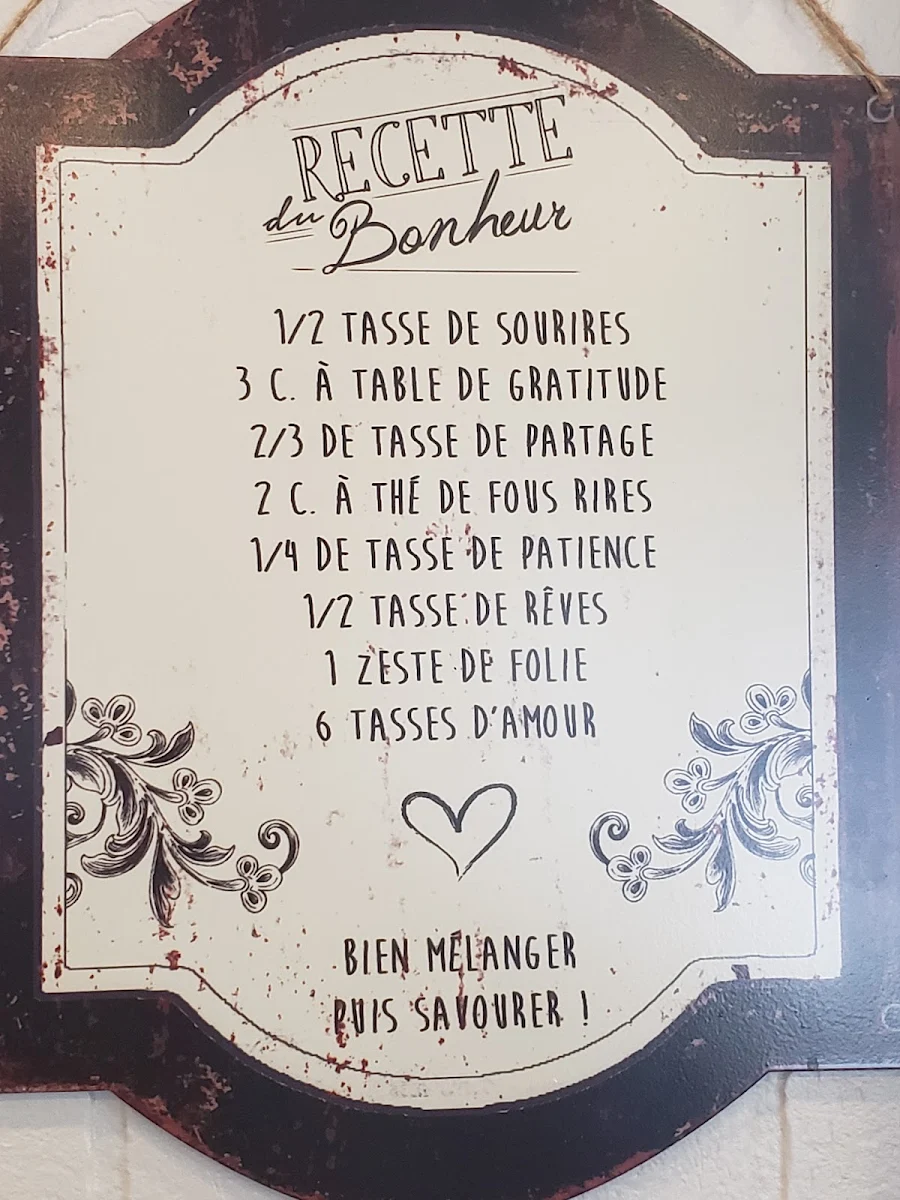 RECETTE
du Bonheur
1/2 TASSE DE SOURIRES
3 C. À TABLE DE GRATITUDE
2/3 DE TASSE DE PARTAGE
2 C. À THÉ DE FOUS RIRES
1/4 DE TASSE DE PATIENCE
1/2 TASSE DE RÊVES
1 ZESTE DE FOLIE
6 TASSES D'AMOUR
BIEN MÉLANGER
PUIS SAVOURER !